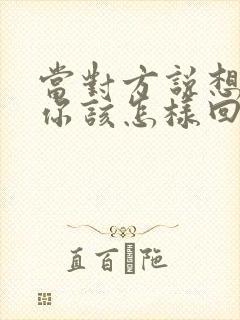 當對方說想
你該怎樣回
直百陁